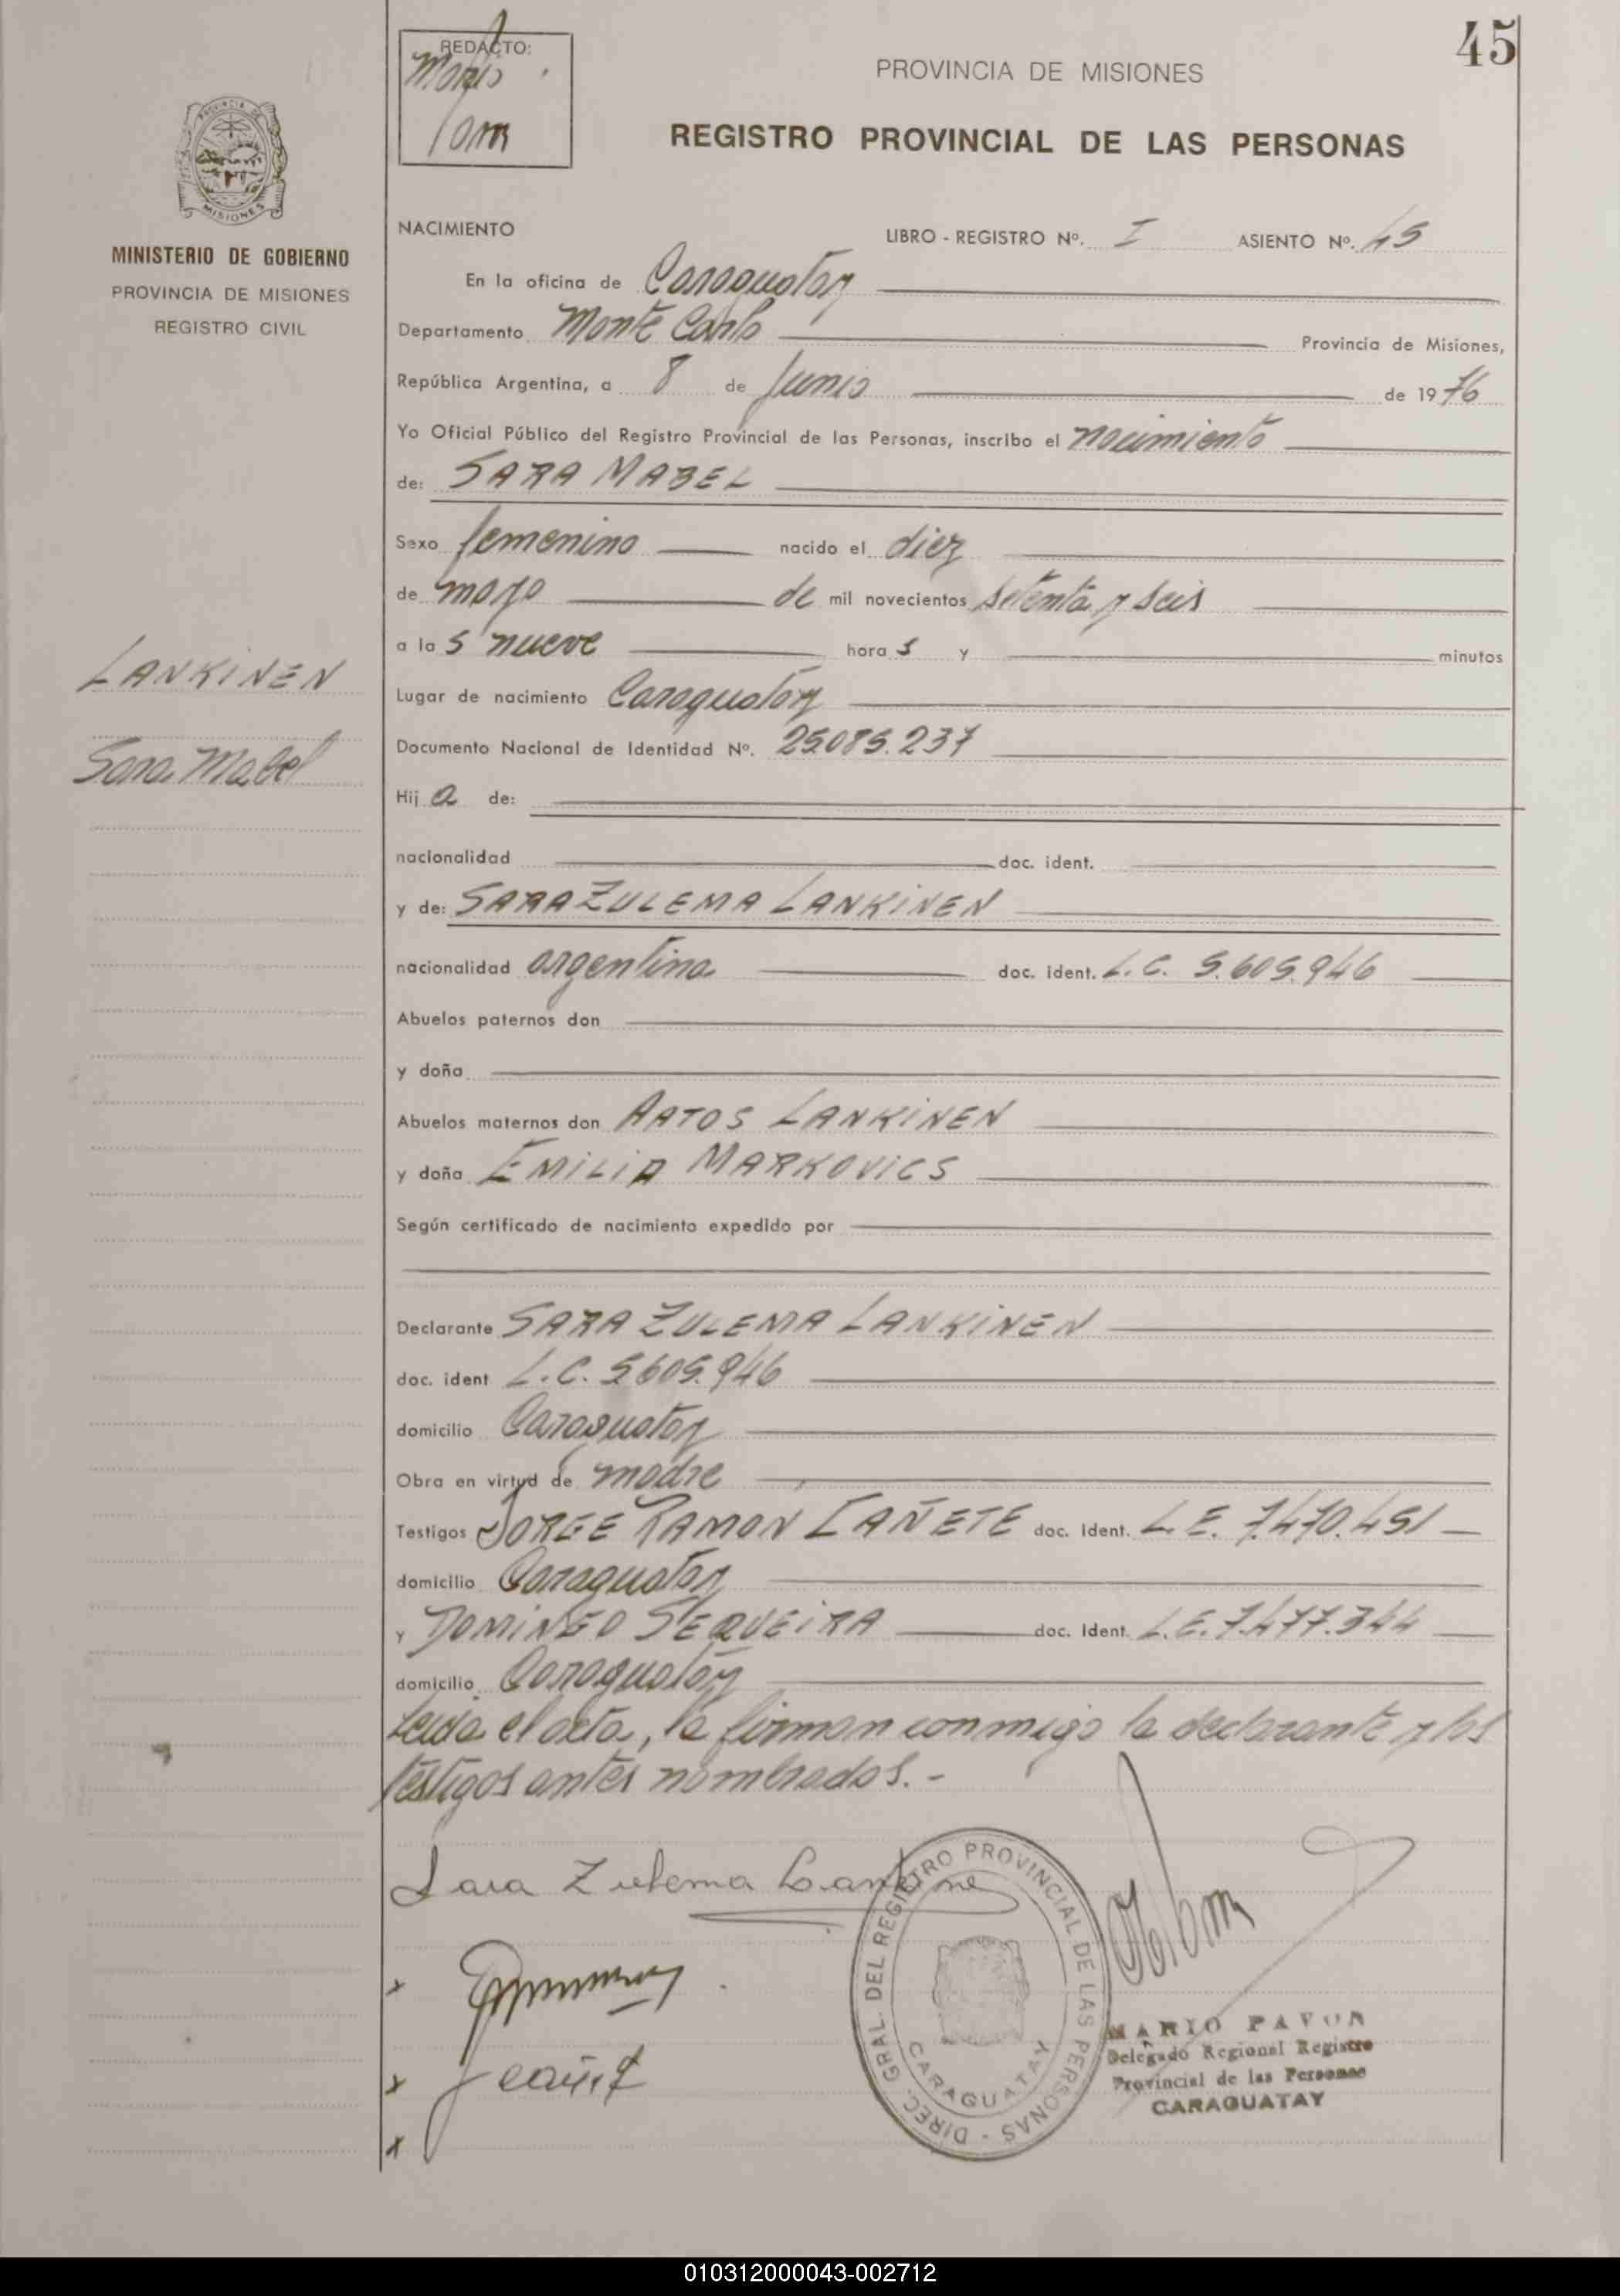 45
REDACTO:
Mario
PROVINCIA DE MISIONES
REGISTRO PROVINCIAL DE LAS PERSONAS
PROVINCIA DE
MISIONES
MINISTERIO DE GOBIERNO
PROVINCIA DE MISIONES
REGISTRO CIVIL
LANKINEN
Sara Mabel
NACIMIENTO LIBRO - REGISTRO Nº. I ASIENTO Nº. 45
En la oficina de Caraguatay
Departamento Monte Carlo Provincia de Misiones,
República Argentina, a 8 de Junio de 1976
Yo Oficial Público del Registro Provincial de las Personas, inscribo el nacimiento
de: SARA MABEL
Sexo femenino nacido el diez
de mayo de mil novecientos setenta y seis
a las nueve horas y minutos
Lugar de nacimiento Caraguatay
Documento Nacional de Identidad Nº. 25.085.237
Hija de:
nacionalidad doc. ident.
y de: SARA ZULEMA LANKINEN
nacionalidad argentina doc. ident. L.C. 5.605.946
Abuelos paternos don
y doña
Abuelos maternos don AATOS LANKINEN
y doña EMILIA MARKOVICS
Según certificado de nacimiento expedido por
Declarante SARA ZULEMA LANKINEN
doc. ident L.C. 5.605.946
domicilio Caraguatay
Obra en virtud de madre
Testigos JORGE RAMON CAÑETE doc. ident. L.E. 7.470.451
domicilio Caraguatay
y DOMINGO SEQUEIRA doc. ident. L.E. 7.477.344
domicilio Caraguatay
Leida el acta, la firman conmigo la declarante y los
testigos antes nombrados.-
Sara Zulema Lankine
DIREC. GRAL. DEL REGISTRO PROVINCIAL DE LAS PERSONAS -
CARAGUATAY
MARIO PAVON
Delegado Regional Registro
Provincial de las Personas
CARAGUATAY
010312000043-002712